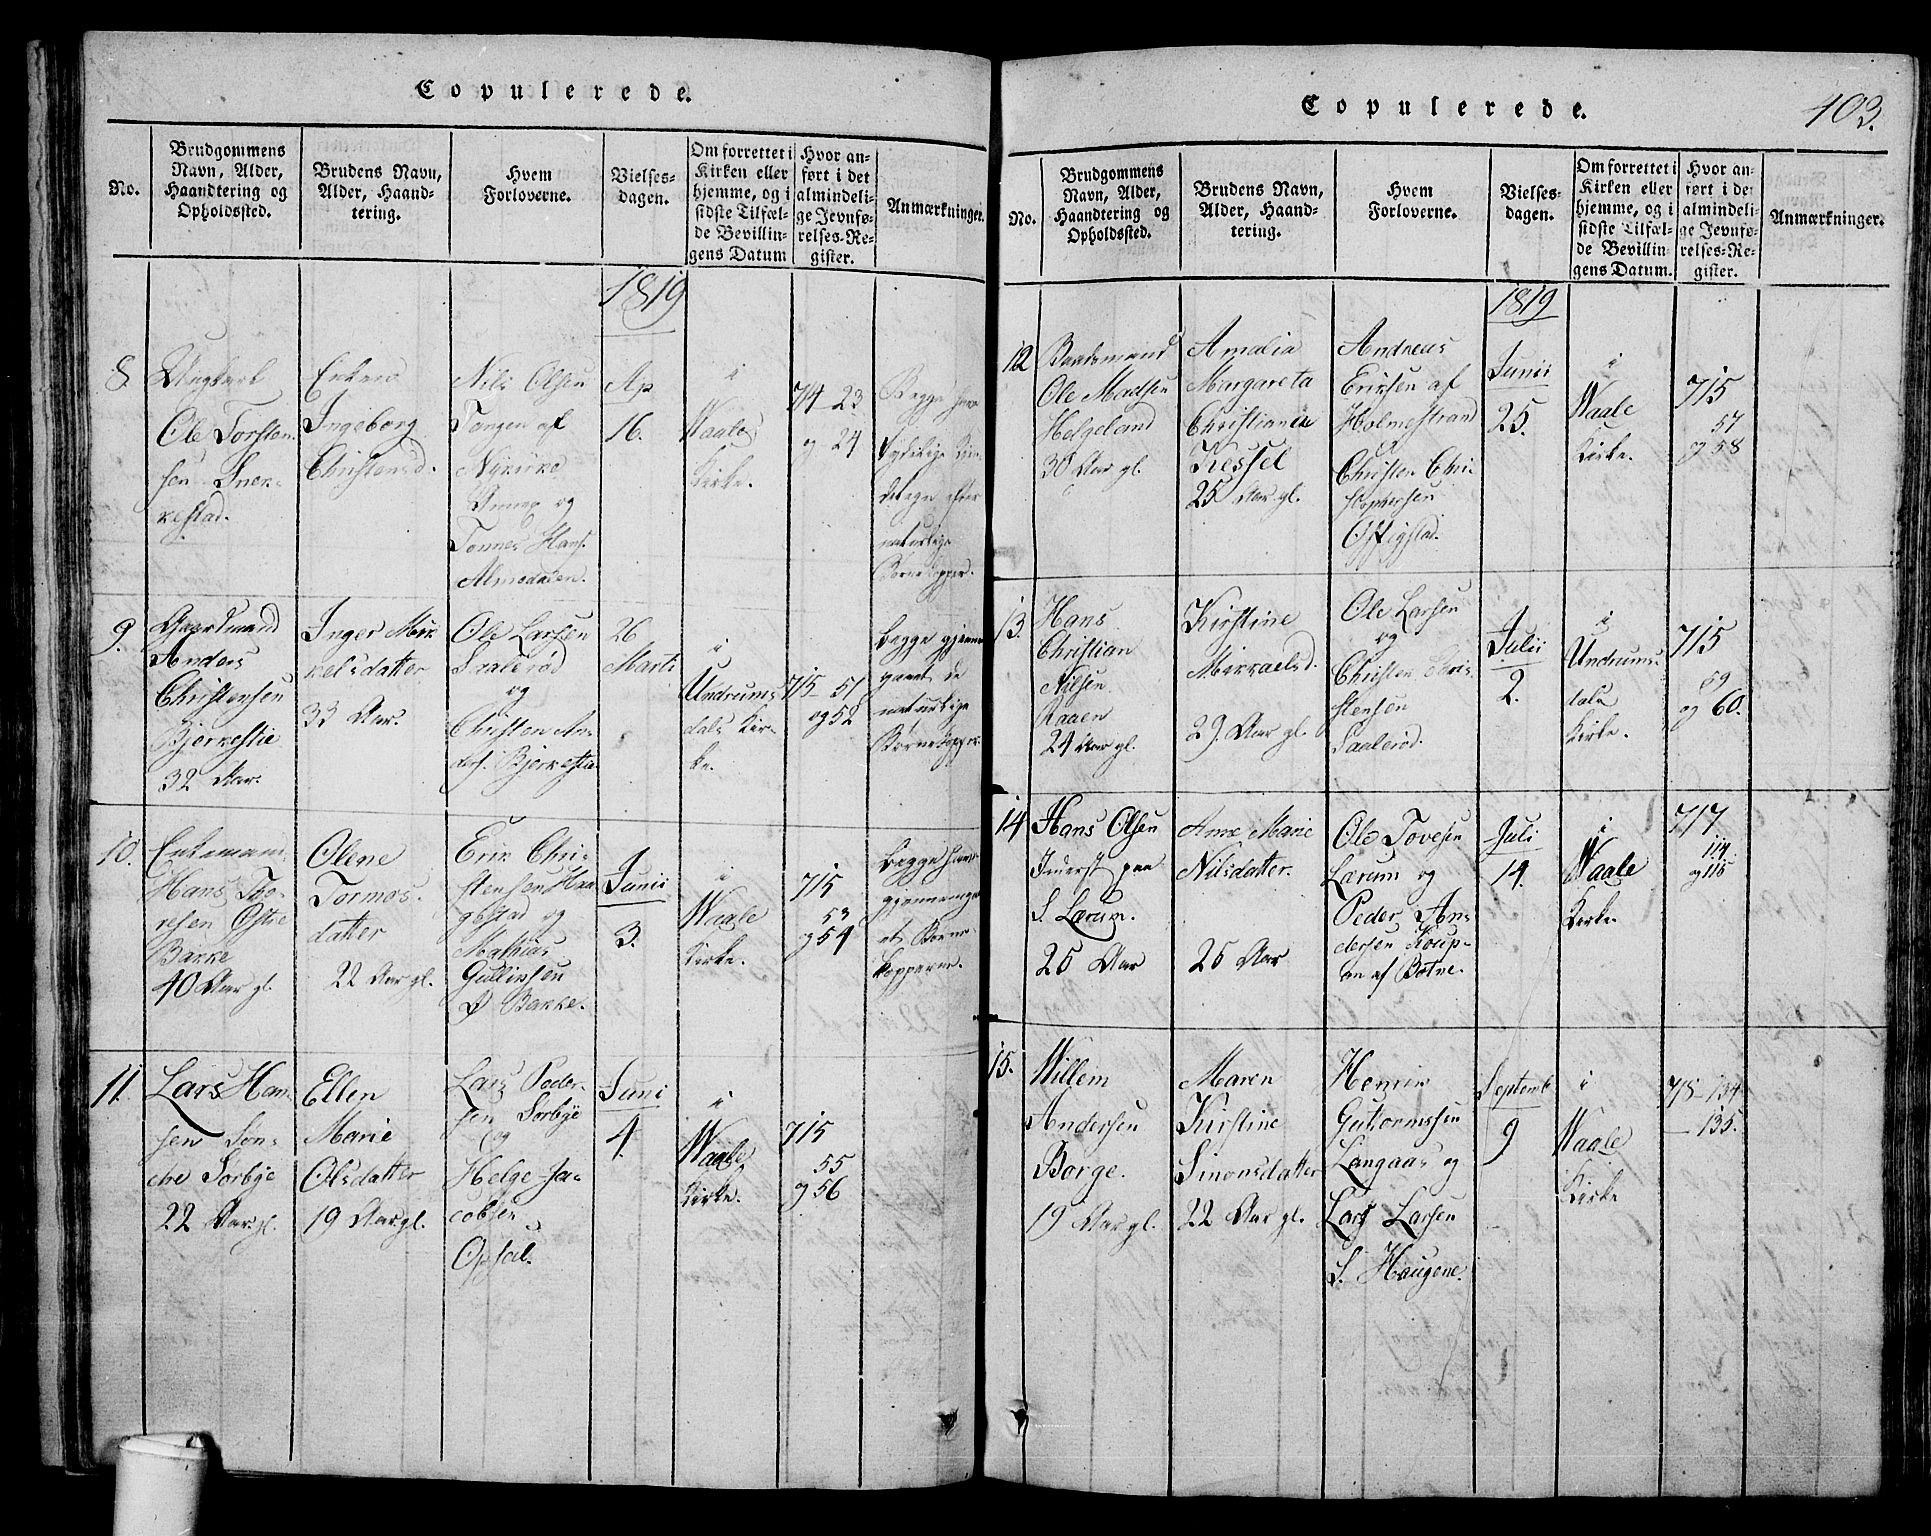 Copulerede.
No.
Brudgommens
Navn, Alder,
Haandtering og
Opholdssted.
Brudens Navn,
Alder, Haand-
tering.
Hvem
Forloverne.
Vielses-
dagen.
Om forrettet i
Kirken eller
hjemme, og i
sidste Tilfæl-
de Bevillin-
gens Datum
Hvor an-
ført i det
almindeli-
ge Jevnfø-
relses-Re-
gister.
Anmærkninger.
1819
8.
Ungkarl
Ole Torsten-
sen Sner-
kestad.
Enken
Ingeborg
Christensd.
Nils Olsen
Tangen af
Nykirke
Annex og
Tønnes Hans.
Almedalen.
Ap
16.
i
Waale
Kirke.
714-23
og 24
Begge have
tydelige Kin-
detegn efter
naturlige
Børnekopper.
9.
Gaardmand
Anders
Christensen
Bjerkestie
32 Aar.
Inger Mik-
kelsdatter
33 Aar.
Ole Larsen
Saalerød
og
Christen An-
ders. Bjerkestie
26
Marti
i
Undrums
dals Kir-
ke.
715-51
og 52
Begge gjenem
gaaet de
naturlige
Børnekopper.
10.
Enkemand
Hans Tho-
resen Østre
Bakke
40 Aar gl.
Olene
Tormos-
datter
22 Aar gl.
Erik Chri-
stensen Haa-
gestad og
Mathias
Gullinsen
Ø Bakke.
Junii
3.
i
Waale
Kirke.
715
53
og 54
Begge have
gjennemga-
et Børne
kopperne.
11.
Lars Han-
sen Søn-
dre Sørbye
22 Aar gl.
Ellen
Marie
Olsdatter
19 Aar gl.
Lars Peder-
sen Sørbye
og
Helge Ja-
cobsen
Opsal.
Juni
4.
i
Waale
Kirke.
715
55
og 56
Copulerede.
403.
No.
Brudgommens
Navn, Alder,
Haandtering og
Opholdssted.
Brudens Navn,
Alder, Haand-
tering.
Hvem
Forloverne.
Vielses-
dagen.
Om forrettet i
Kirken eller
hjemme, og i
sidste Tilfæl-
de Bevillin-
gens Datum.
Hvor an-
ført i det
almindeli-
ge Jevnfø-
relses-Re-
gister.
Anmærkninger.
1819
12
Baadsmand
Ole Madsen
Helgeland
30 Aar gl.
Amalia
Margareta
Christiane
Kessel
25 Aar gl.
Andreas
Eriksen af
Holmestrand
Christen Chri-
stophersen
Offigstad.
Junii
25.
i
Waale
Kirke.
715
57
og 58
13.
Hans
Christian
Nilsen
Raaen
24 Aar gl.
Kirstine
Mikkaelsd.
29. Aar gl.
Ole Larsen
og
Christen Chris-
stensen
Saalerød.
Julii
2.
i
Undrums
dals
Kirke.
715
59
og 60.
14
Hans Olsen
Inderst paa
S. Lærum.
25 Aar
Anne Marie
Nilsdatter.
25 Aar
Ole Tovesen
Lærum og
Peder An-
dersen Koup-
an af Botne.
Juli
14.
i
Waale
Kirke.
717
114
og 115
15.
Willem
Andersen
Borge.
19 Aar gl.
Maren
Kirstine
Simonsdatter
22 Aar gl.
Henrik
Guttormssen
Langaas og
Lars Larsen
S. Haugene.
Septembr
9
i
Waale
Kirke
718-134
-135.